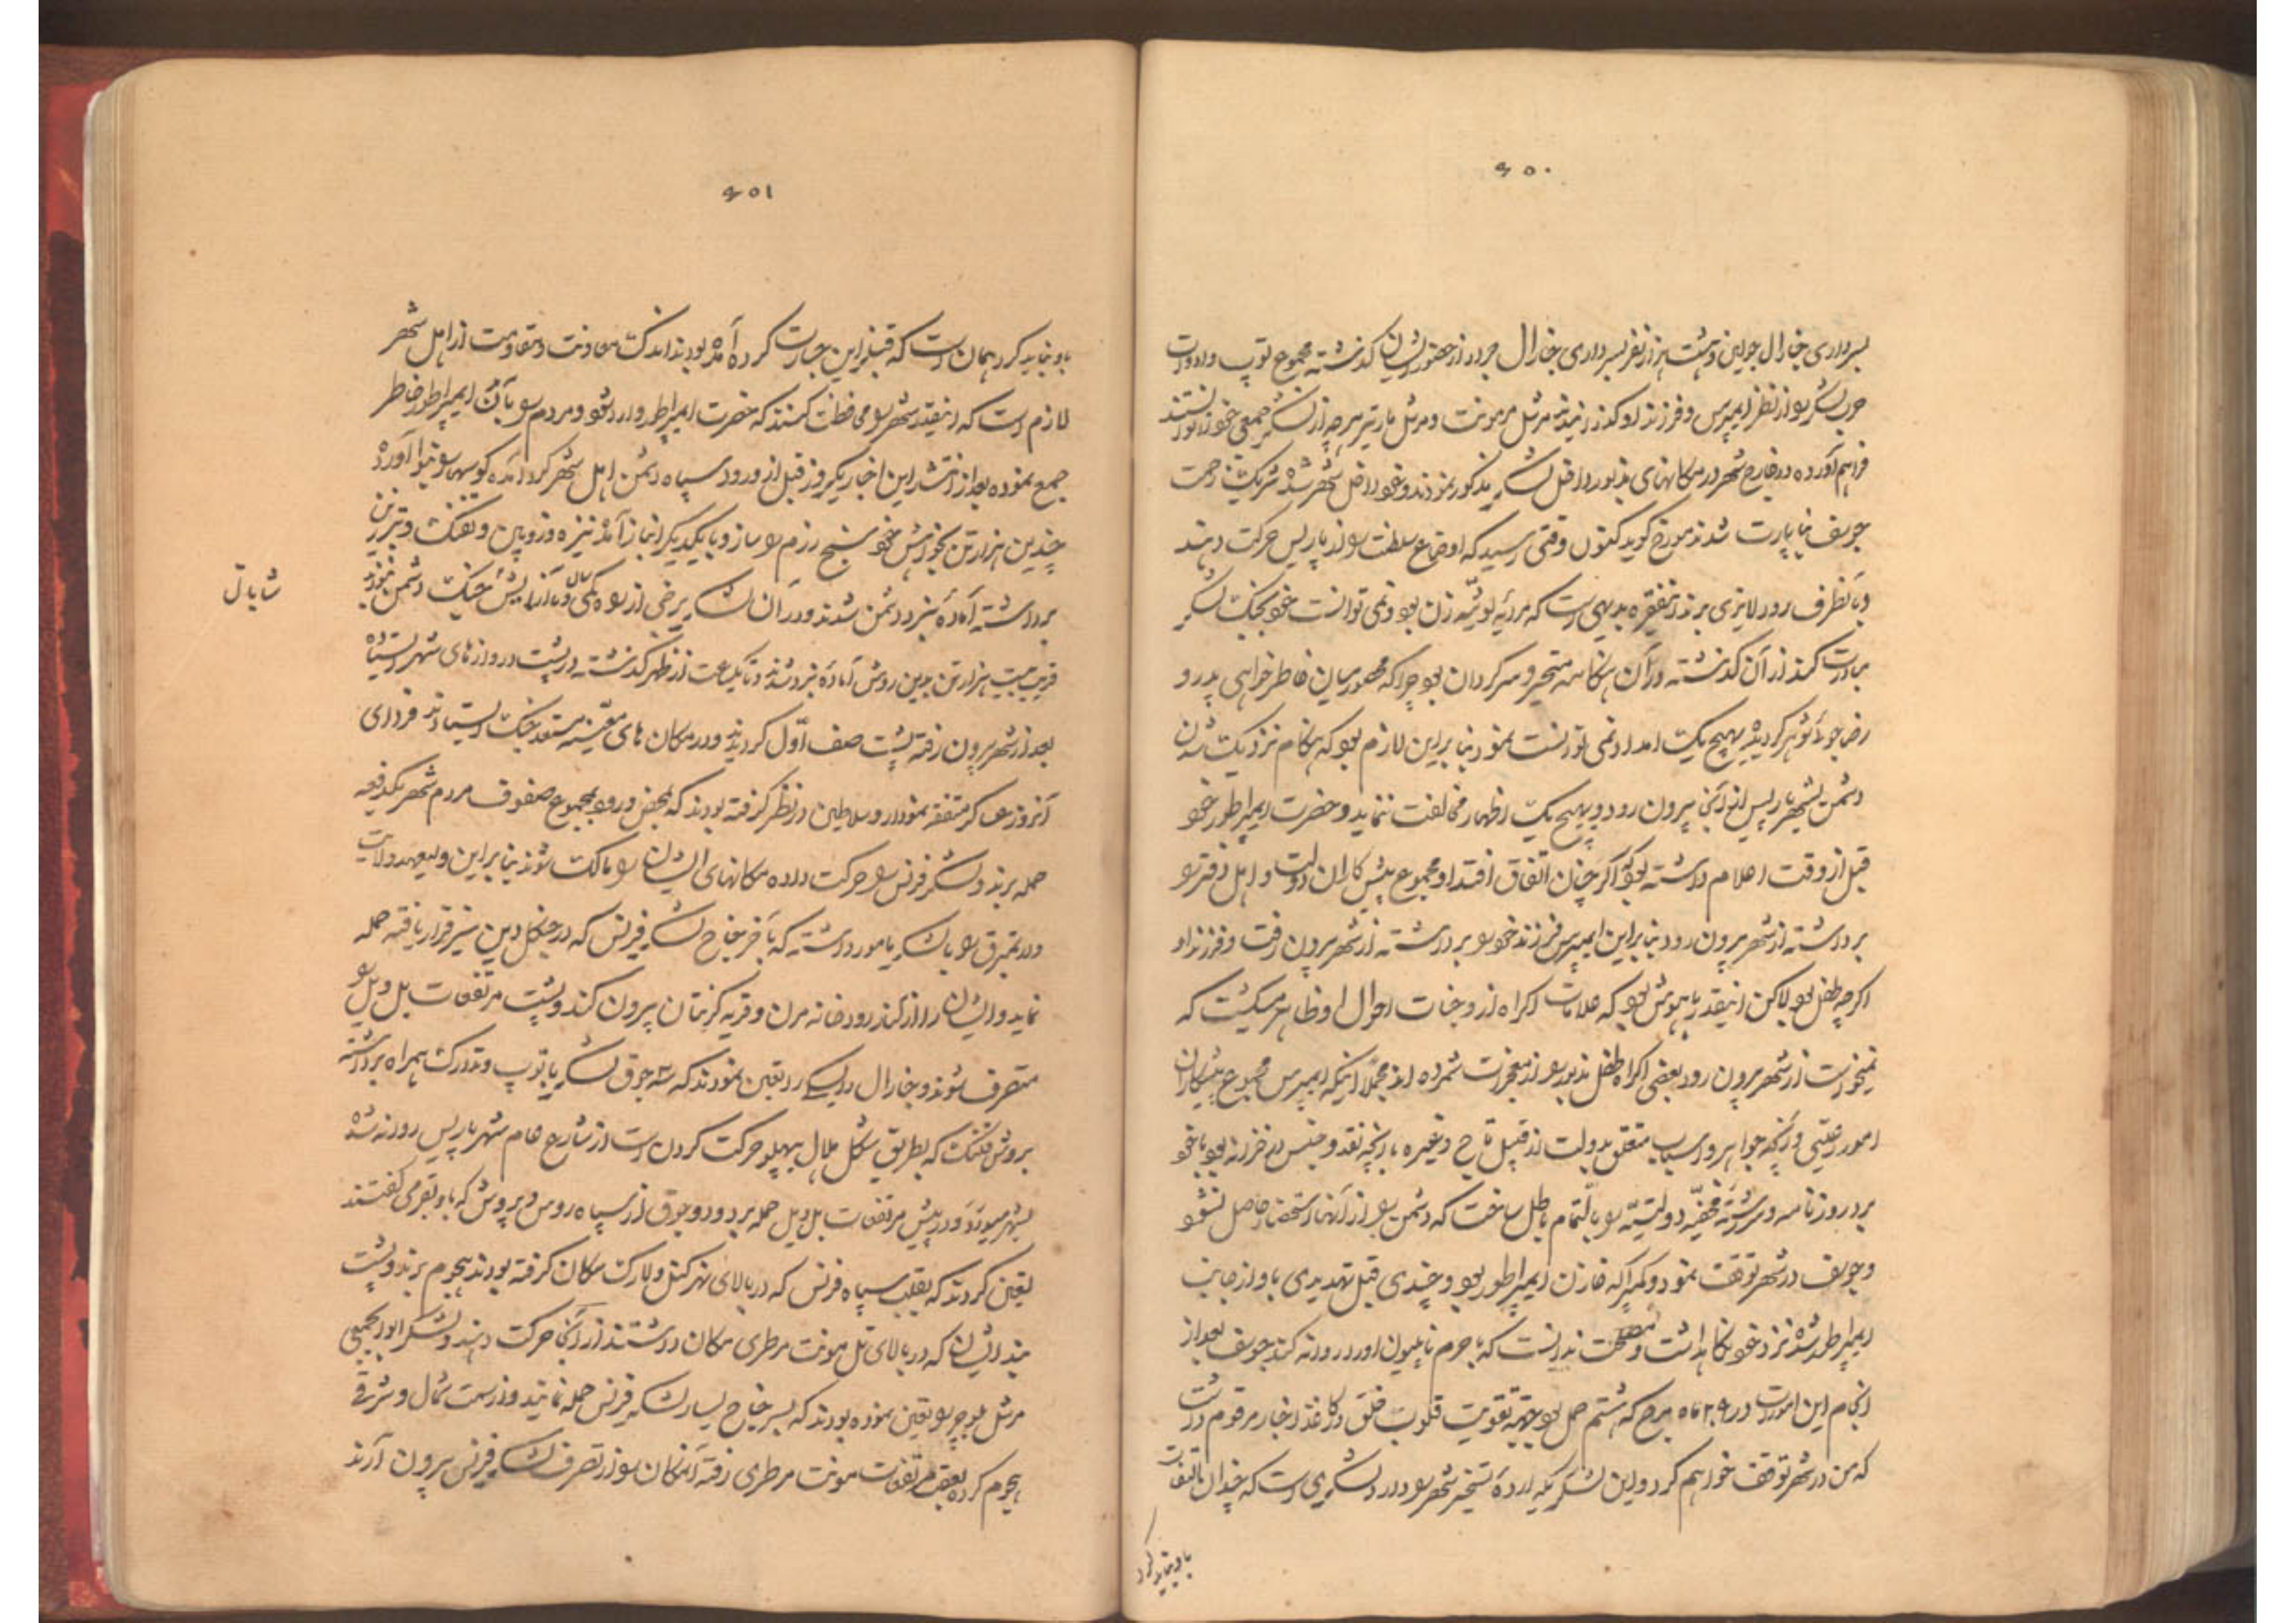 ۶۵۰
بسرداری جنارال جولین و هشت هزار نفر بسرداری جنارال جرد از حضور ایشان گذشته مجموع توپ و ادوات
حرب لشکر را از نظر ایمپرس و فرزند او گذرانیدند مرشل مرمونت و مرشل مارتیر هرچه از لشکر جمعی خود توانستند
فراهم آورده در خارج شهر در مکانهای مذبور داخل لشکر مذکور نمودند و خود داخل شهر شده شریک زحمت
جوسف بناپارت شدند مورخ گوید کنون وقتی رسید که اوضاع سلطنت را از پاریس حرکت دهند
و بطرف رود لایزی برند اینفقره بدیهی است که مردیه لوئیه زن بود و نمی توانست خود بجنگ لشکر
مبادرت کند از آن گذشته در آن هنگامه متحیر و سرگردان بود چرا که محصور میان خاطر خواهی پدر و
رضاجوئی شوهر گردیده بهیچ یک امداد نمی توانست نمود بنا براین لازم بود که هنگام نزدیک شدن
دشمن بشهر پاریس از آنجا بیرون رود و بهیچ یک اظهار مخالفت ننماید و حضرت ایمپراطور خود
قبل از وقت اعلام داشته بود که اگر چنان اتفاق افتد او مجموع پیش کاران دولت و اهل دفتر را
برداشته از شهر بیرون رود بنا براین ایمپرس فرزند خود را برداشته از شهر بیرون رفت و فرزند او
اگرچه طفل بود لاکن اینقدر باهوش بود که علامات اکراه از وجنات احوال او ظاهر میگشت که
نمیخواست از شهر بیرون رود بعضی اکراه طفل مذبور را از معجزات شمرده اند مجملاً اینکه ایمپرس مجموع پیشکاران
امور رعیتی و آنچه جواهر و اسباب متعلق بدولت از قبیل تاج و غیره با آنچه نقد و جنس در خزانه بود با خود
برد روزنامه و سررشته خفیه دولتیه را بالتمام باطل ساخت که دشمن را از آنها استحضار حاصل نشود
و جوسف در شهر توقف نمود و کمپراکه خازن ایمپراطور بود و چندی قبل تهدیدی باو از جانب
ایمپراطور شده نزد خود نگاهداشت و مصلحت ندانست که با حرم ناپلیون او را روانه کند جوسف بعد از
انجام این امورات در ۲۹ ماه مرچ که هشتم حمل بود جهة تقویت قلوب خلق در کاغذ اخبار مرقوم داشت
که من در شهر توقف خواهم کرد و این لشکر یکه اراده تسخیر شهر را دارد لشکری است که چندان التفات
باو نباید کرد
۶۵۱
باو نباید کرد همان است که قبل از این جسارت کرده آمده بودند اندک معاونت و مقاومت از اهل شهر
لازم است که اینقدر شهر را محافظت کنند که حضرت ایمپراطور وارد شود و مردم را بآمدن ایمپراطور خاطر
جمع نموده بعد از انتشار این اخبار یکروز قبل از ورود سپاه دشمن اهل شهر گرد آمده کوسها را بنوا آورد
چندین هزار تن بخواهش خود بسیج رزم را ساز و با یکدیگر انباز آمده نیزه و زوبین و تفنگ و تبرزین
برداشته آماده نبرد دشمن شدند و در آن لشکر برخی از
قریب بیست هزار تن بدین روش آماده نبرد شدند و تا یکساعت از ظهر گذشته در پشت دروازهای شهر ایستاده
بعد از شهر بیرون رفته پشت صف اول گردیدند و در مکان های معینه مستعد جنگ ایستادند فردای
آنروز عساکر متفقه نمودار و سلاطین در نظر گرفته بودند که بمحض ورود بمجموع صفوف مردم شهر یکدفعه
حمله برند و لشکر فرنس را حرکت داده مکانهای ایشان را مالک شوند بنا براین ولیعهد ولایت
ورتمبرق را با لشکر مامور داشته که بآخر خارج لشکر فرنس که در جنگل وین سیز قرار یافته حمله
نماید و ایشان را از کنار رودخانه مرن و قریه کرنتان بیرون کند و پشت مرتفعات بل ویل را
متصرف شوند و جنارال راسکی را تعین نمودند که سه جوق لشکر با توپ و تدارک همراه برداشته
بروش فلنک که بطریق شکل هلال بپهلو حرکت کردن است از شارع عام شهر پاریس روانه شده
بشهر میورد و در پیش مرتفعات بل ویل حمله برد و دو جوق از سپاه روس و پروش که باو بقرمی گفتند
تعین کردند که بقلب سپاه فرنس که در بالای نهر کنل ولارک مکان گرفته بودند هجوم برند و پشت
بند ایشان که در بالای تل مونت مرطری مکان داشتند از آنجا حرکت دهند و لشکر ابوابجمعی
مرشل بلوچر را تعین نموده بودند که بسر خارج یسار لشکر فرنس حمله نمایند و از سمت شمال و شرقی
هجوم کرده بعقب مرتفعات مونت مرطری رفته آنمکان را از تصرف لشکر فرنس بیرون آرند